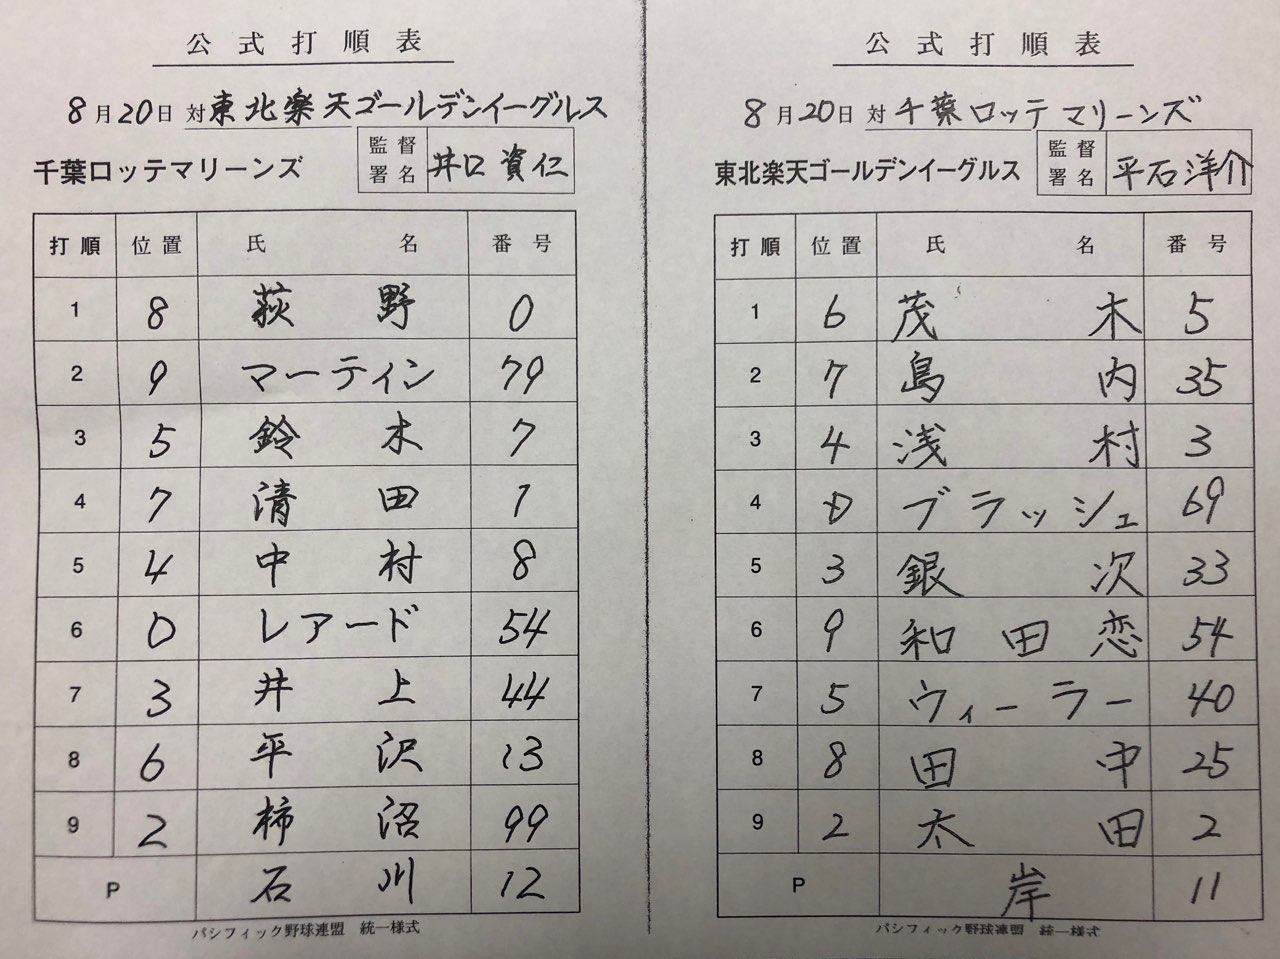 公式打順表
8月20日 対 東北楽天ゴールデンイーグルス
千葉ロッテマリーンズ 監督署名 井口資仁
打順 位置 氏名 番号
1 8 荻野 0
2 9 マーティン 79
3 5 鈴木 7
4 7 清田 1
5 4 中村 8
6 0 レアード 54
7 3 井上 44
8 6 平沢 13
9 2 柿沼 99
P 石川 12
パシフィック野球連盟 統一様式
公式打順表
8月20日 対 千葉ロッテマリーンズ
東北楽天ゴールデンイーグルス 監督署名 平石洋介
打順 位置 氏名 番号
1 6 茂木 5
2 7 島内 35
3 4 浅村 3
4 D ブラッシュ 69
5 3 銀次 33
6 9 和田恋 54
7 5 ウィーラー 40
8 8 田中 25
9 2 太田 2
P 岸 11
パシフィック野球連盟 統一様式